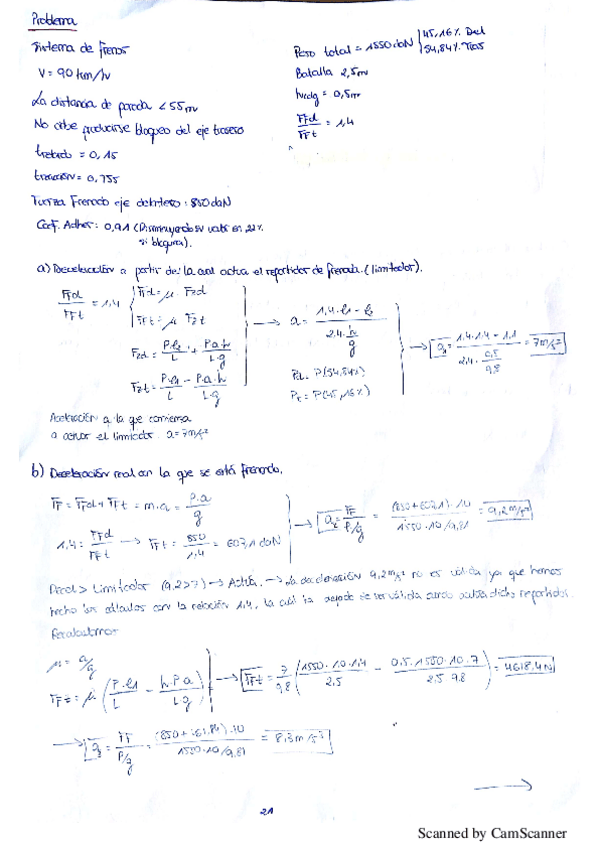 Problema
Sistema de frenos
V = 90 km/h
La distancia de parada < 55m
No debe producirse bloqueo del eje trasero
t retardo = 0,15
t reacción = 0,755
Fuerza Frenado eje delantero: 850 daN
Coef. Adher: 0,91 (Disminuyendo su valor en 22%
si bloquea).
Peso total = 1550 daN | 45,16% Del
54,84% Tras
Batalla 2,5m
hcdg = 0,5m
FFd/FFt = 1,4
a) Deceleración a partir de la cual actúa el repartidor de frenada. (limitador).
FFd/FFt = 1,4 { FFd = μ · Fzd
FFt = μ · Fzt
Fzd = P·l2/L + P·a·h/L·g
Fzt = P·l1/L - P·a·h/L·g
→ a = (1,4·l1 - l2)/(2,4·h/g)
Pd = P(54,84%)
Pt = P(45,16%)
→ a1 = (1,4·1,4 - 1,1)/(2,4·0,5/9,8) = 7m/s²
Aceleración a la que comienza
a actuar el limitador a = 7m/s²
b) Deceleración real con la que se está frenando.
FF = FFd + FFt = m·a = P·a/g
1,4 = FFd/FFt → FFt = 850/1,4 = 607,1 daN
→ a2 = FF/(P/g) = (850+607,1)·10/(1550·10/9,81) = 9,2m/s²
Decel > Limitador (9,2 > 7) → Actúa. → La deceleración 9,2m/s² no es válida ya que hemos
hecho los cálculos con la relación 1,4, la cual ha dejado de ser válida cuando actúa dicho repartidor.
Recalculamos
μ = a/g
FFt = μ (P·l1/L - h·P·a/L·g)
→ FFt = 7/9,8 (1550·10·1,4/2,5 - 0,5·1550·10·7/2,5·9,8) = 4618,4N
→ a3 = FF/(P/g) = (850+461,84)·10/(1550·10/9,81) = 8,3m/s²
21
Scanned by CamScanner